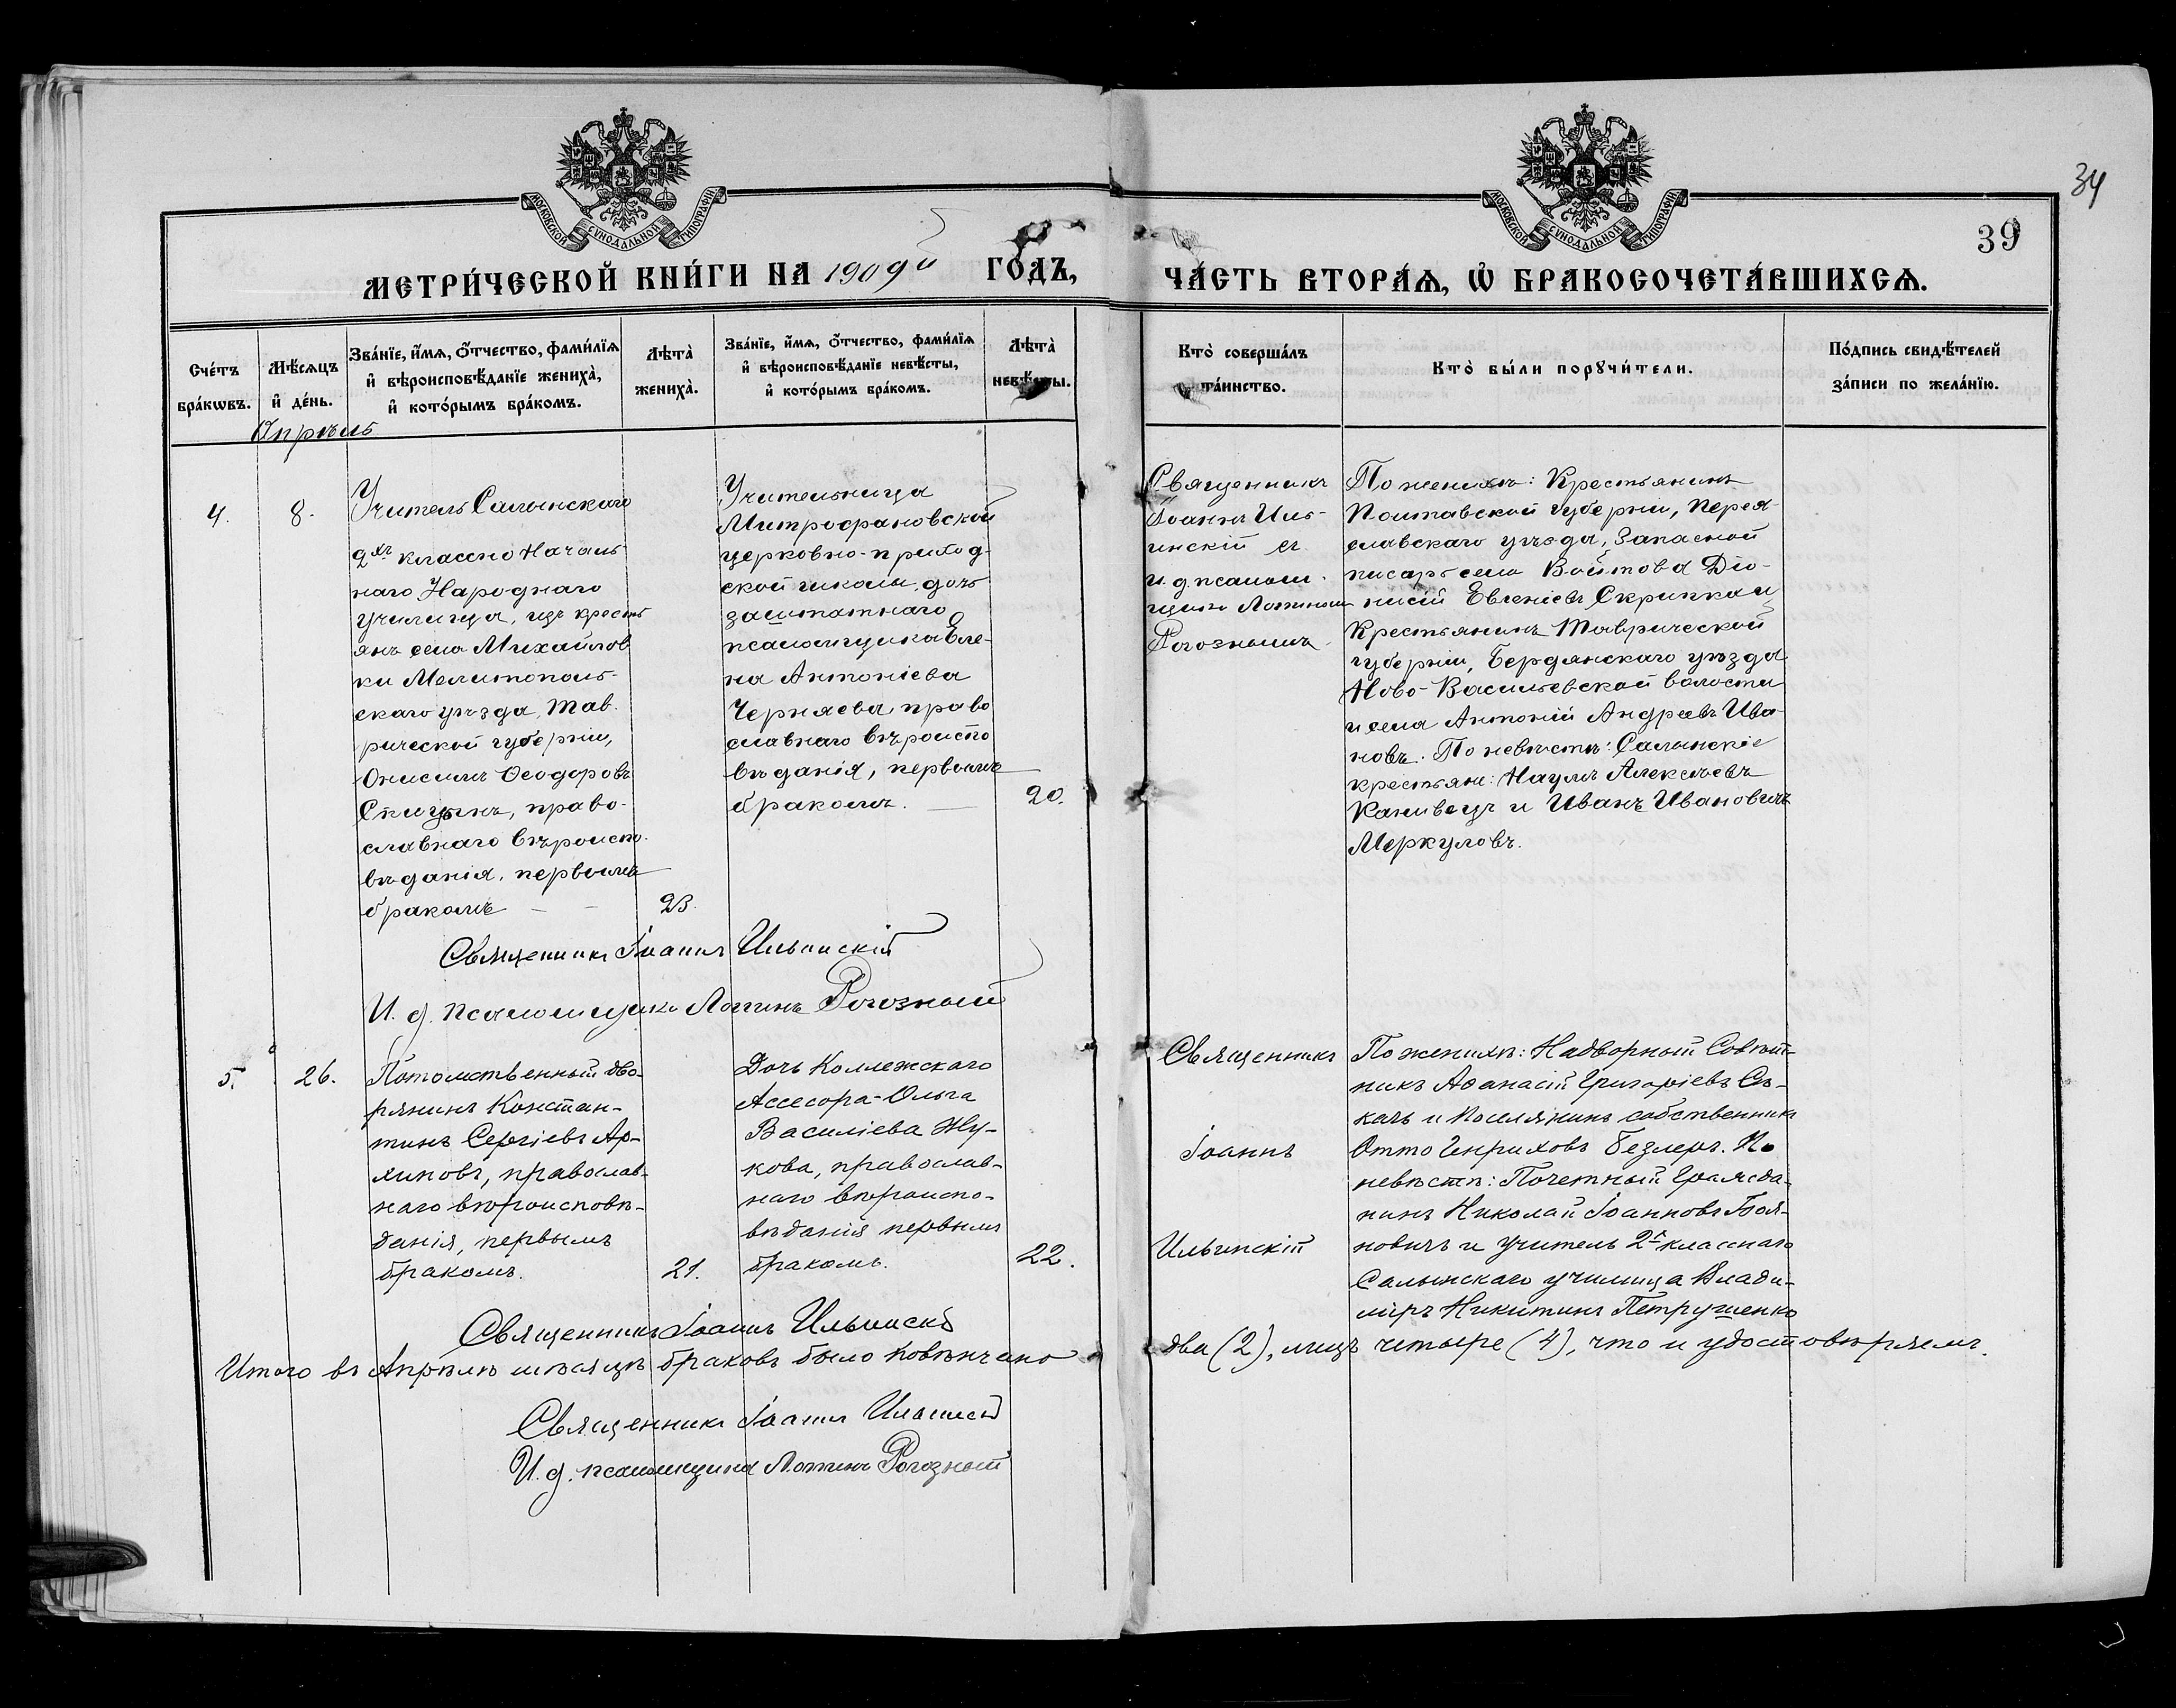 34
39
МОСКОВСКОЙ СѴНОДАЛЬНОЙ ТИПОГРАФІИ
МОСКОВСКОЙ СѴНОДАЛЬНОЙ ТИПОГРАФІИ
МЕТРИ́ЧЕСКОЙ КНИ́ГИ НА 1909й ГОДЪ,
ЧА́СТЬ ВТОРА́Ѧ, Ѽ БРАКОСОЧЕТА́ВШИХСѦ.
Сче́тъ
бра́кѡвъ.
Мѣ́сѧцъ
и҆ де́нь.
Зва́нїе, и҆́мѧ, ѻ҆́тчество, фами́лїѧ
и҆ вѣроисповѣ́данїе жениха̀,
и҆ кото́рымъ бра́комъ.
Лѣта̀
жениха̀.
Зва́нїе, и҆́мѧ, ѻ҆́тчество, фами́лїѧ
и҆ вѣроисповѣ́данїе невѣ́сты,
и҆ кото́рымъ бра́комъ.
Лѣта̀
невѣ́сты.
Кто̀ соверша́лъ
та́инство.
Кто̀ бы́ли порꙋчи́тели.
По́дпись свидѣ́телей
за́писи по жела́нїю.
Апрѣль
4.
8.
Учитель Салынскаго
2хъ классно Началь-
наго Народнаго
училища, изъ кресть
янъ села Михайлов
ки Мелитополь-
скаго уѣзда, Тав-
рической губерніи,
Онисимъ Ѳеодоровъ
Спицынъ, право-
славнаго вѣроиспо-
вѣданія, первымъ
бракомъ
23.
Учительница
Митрофановской
церковно-приход-
ской школы, дочь
заштатнаго
псаломщика Еле-
на Антоніева
Черняева, право
славнаго вѣроиспо
вѣданія, первымъ
бракомъ.
20.
Священникъ
Іоаннъ Иль-
инскій съ
и. д псалом-
щика Логиномъ
Рогознымъ
По женихѣ: Крестьянинъ
Полтавской губерніи, Перея-
славскаго уѣзда, Запасной
писарь села Войтова Діо-
нисій Евгеніевъ Скрипка и
Крестьянинъ Таврической
губерніи, Бердянскаго уѣзда
Ново-Васильевской волости
и села Антоній Андреевъ Ива-
новъ. По невѣстѣ: Салынскіе
крестьяне: Наумъ Алексѣевъ
Канивецъ и Иванъ Ивановичъ
Меркуловъ.
Священникъ Іоаннъ Ильинскій
И. д. псаломщика Логинъ Рогозный
5.
26.
Потомственный дво-
рянинъ Констан-
тинъ Сергіевъ Ар-
хиповъ, православ-
наго вѣроисповѣ-
данія, первымъ
бракомъ.
21.
Дочь Коллежскаго
Ассесора-Ольга
Василіева Жу-
кова, православ-
наго вѣроиспо-
вѣданія первымъ
бракомъ.
22.
Священникъ
Іоаннъ
Ильинскій
По женихѣ: Надворный Совѣт-
никъ Аѳанасій Григоріевъ Сѣ-
качъ и Поселянинъ собственникъ
Отто Генриховъ Безлеръ. По
невѣстѣ: Почетный Гражда-
нинъ Николай Іоанновъ Боя-
новичъ и учитель 2х классного
Салынскаго училища Влади-
миръ Никитинъ Петрушенко
Священникъ Іоаннъ Ильинскій
Итого въ Апрѣлѣ мѣсяцѣ браковъ было повѣнчано два (2), лицъ четыре (4), что и удостовѣряемъ.
Священникъ Іоаннъ Ильинскій
И. д. псаломщика Логинъ Рогозный